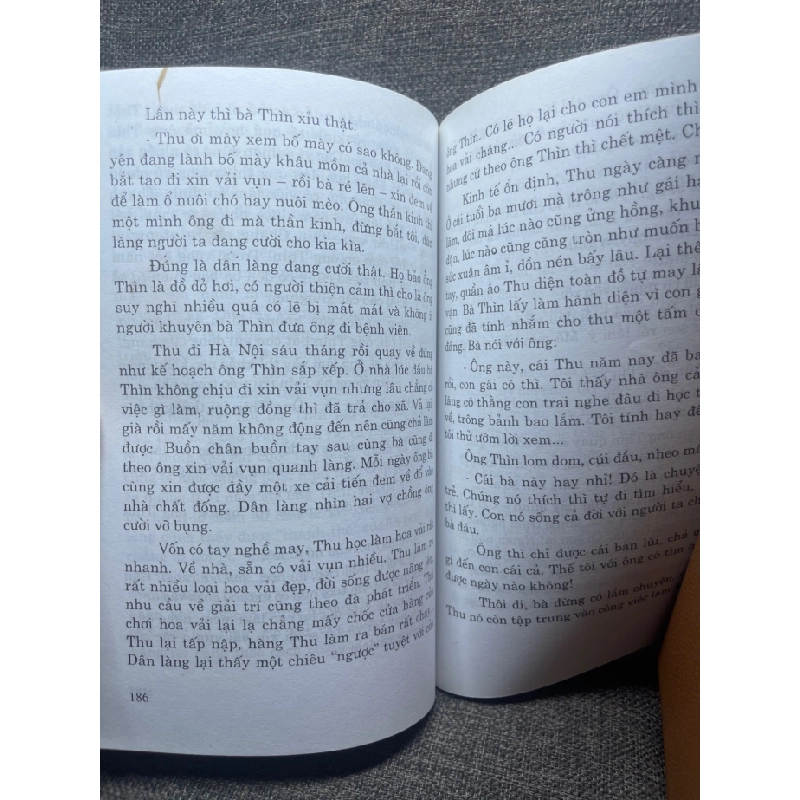 Lần này thì bà Thìn xỉu thật.
- Thu ơi mày xem bố mày có sao không. Đang
yên đang lành bố mày khâu mồm cả nhà lại rồi còn
bắt tao đi xin vải vụn – rồi bà ré lên – xin đem về
để làm ổ nuôi chó hay nuôi mèo. Ông thần kinh thì
một mình ông đi mà thần kinh, đừng bắt tôi, dân
làng người ta đang cười cho kia kìa.
Đúng là dân làng đang cười thật. Họ bảo ông
Thìn là dở dở hơi, có người thiện cảm thì cho là ông
suy nghĩ nhiều quá có lẽ bị mát mát và không ít
người khuyên bà Thìn đưa ông đi bệnh viện.
Thu đi Hà Nội sáu tháng rồi quay về đúng
như kế hoạch ông Thìn sắp xếp. Ở nhà lúc đầu bà
Thìn không chịu đi xin vải vụn nhưng lâu chẳng có
việc gì làm, ruộng đồng thì đã trả cho xã. Vả lại
già rồi mấy năm không động đến nên cũng chả làm
được. Buồn chân buồn tay sau cùng bà cũng đi
theo ông xin vải vụn quanh làng. Mỗi ngày ông bà
cũng xin được đầy một xe cải tiến đem về đổ vào
nhà chất đống. Dân làng nhìn hai vợ chồng ông
cười vỡ bụng.
Vốn có tay nghề may, Thu học làm hoa vải rất
nhanh. Về nhà, sẵn có vải vụn nhiều, Thu làm ra
rất nhiều loại hoa vải đẹp, đời sống được nâng lên,
nhu cầu về giải trí cũng theo đà phát triển. Thú
chơi hoa vải lại lạ chẳng mấy chốc cửa hàng của
Thu lại tấp nập, hàng Thu làm ra bán rất chạy.
Dân làng lại thấy một chiêu “ngược” tuyệt vời của
186
ông Thìn. Có lẽ họ lại cho con em mình
hoa vải cháng... Có người nói thích thì
nhưng cứ theo ông Thìn thì chết mệt.
Kinh tế ổn định, Thu ngày càng
Ở cái tuổi ba mươi mà trông như gái
lắm, đôi má lúc nào cũng ửng hồng,
đặn, lúc nào cũng căng tròn như muốn
sức xuân âm ỉ, dồn nén bấy lâu. Lại
tay, quần áo Thu diện toàn đồ tự may
vặn. Bà Thìn lấy làm hãnh diện vì con
cũng đã tính nhắm cho thu một tấm
đáng. Bà nói với ông:
- Ông này, cái Thu năm nay đã
rồi, con gái có thì. Tôi thấy nhà ông
làng có thằng con trai nghe đâu đi học
về, trông bảnh bao lắm. Tôi tính hay để
tôi thử ướm lời xem...
Ông Thìn lom dom, cúi đầu, nheo
- Cái bà này hay nhỉ! Đó là
trẻ. Chúng nó thích thì tự đi tìm hiểu,
thì lấy. Con nó sống cả đời với người ta
bà đâu.
Ông thì chỉ được cái ban lùi, chả
gì đến con cái cả. Thế tôi với ông có tìm
được ngày nào không!
Thôi đi, bà đừng có lắm chuyện,
Thu nó còn tập trung vào công việc làm